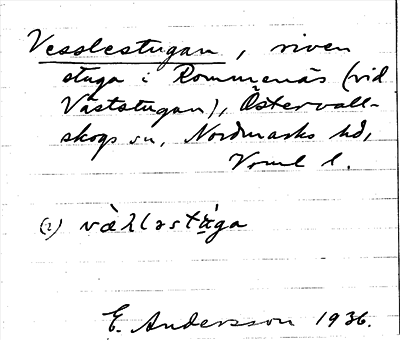 Vesslestugan, riven
stuga i Rommenäs (vid
Väststugan), Östervall-
skogs sn, Nordmarks hd,
Vrml l.
(2)
E. Andersson 1936.